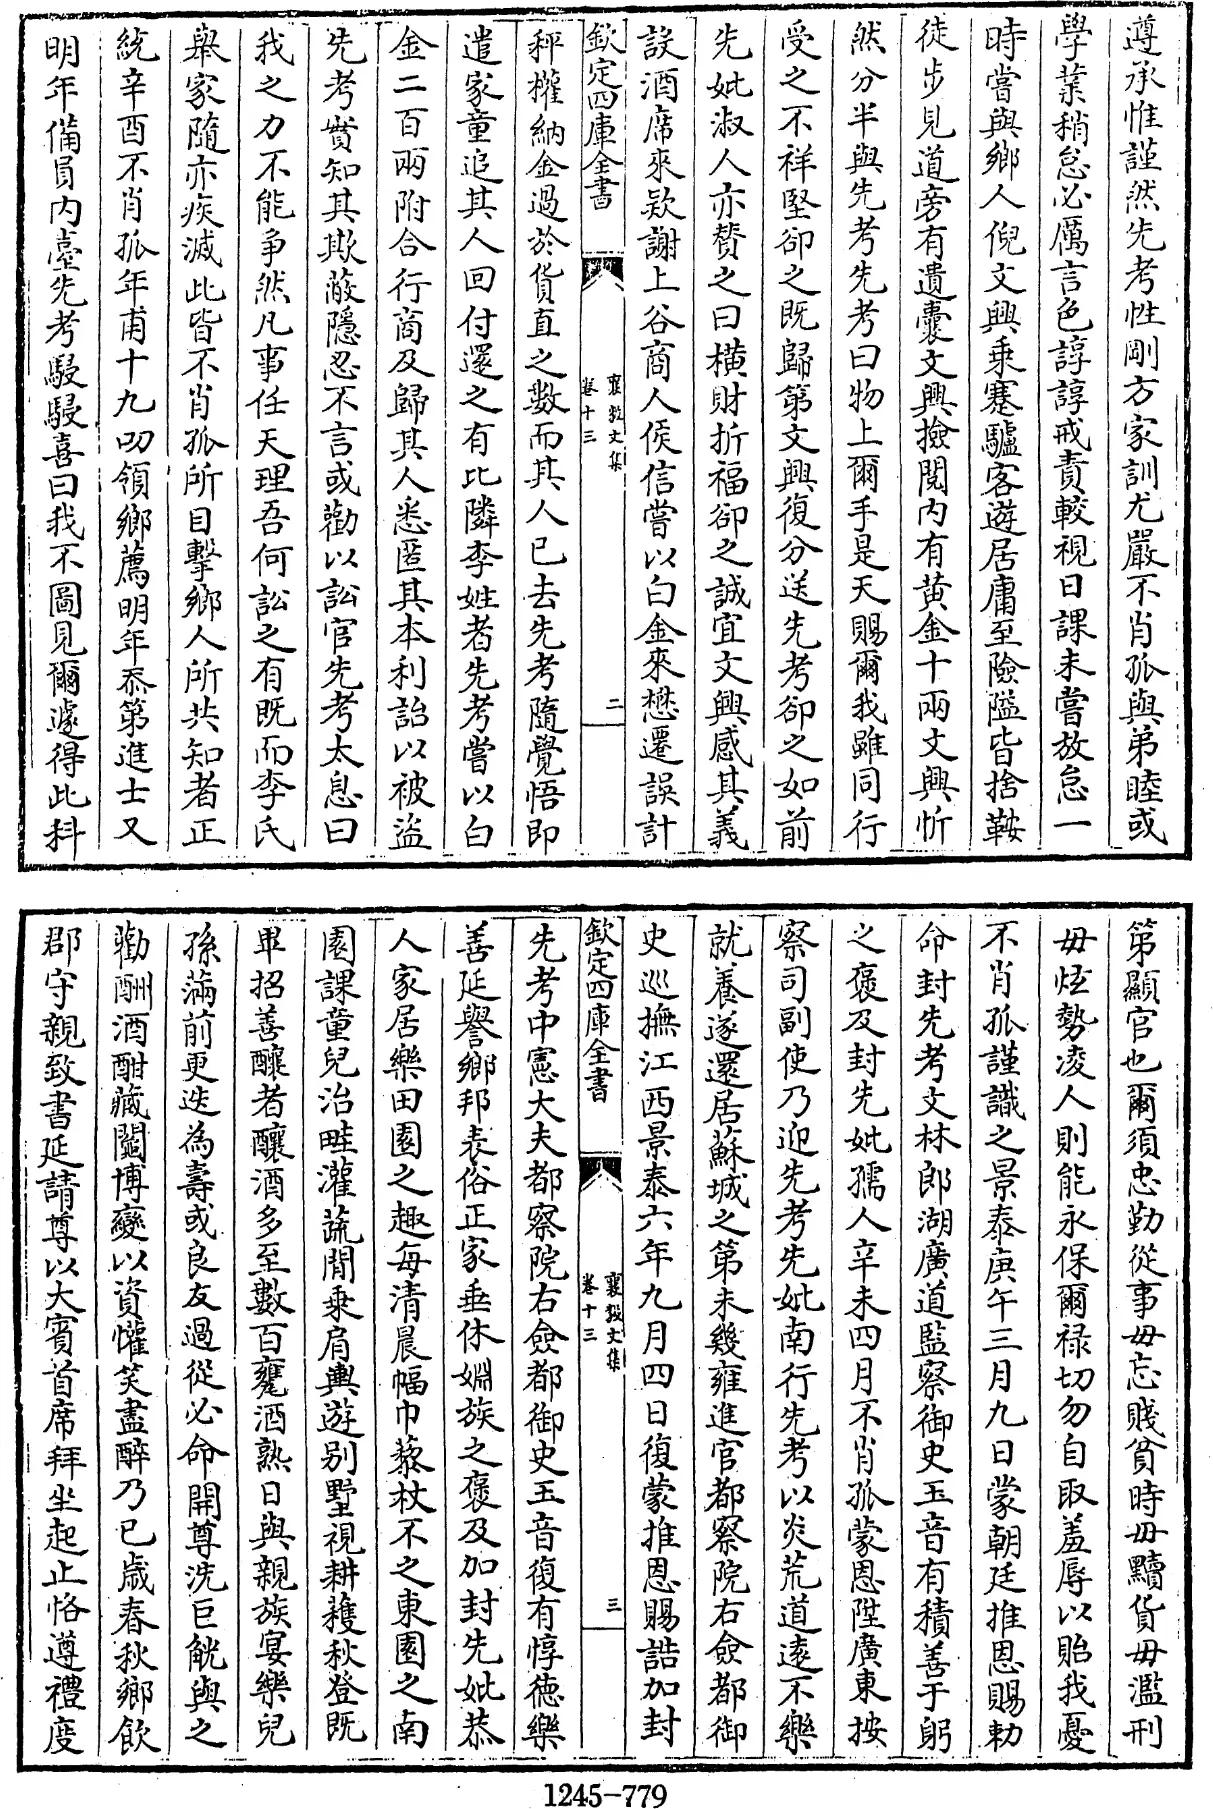 遵承惟謹然先考性剛方家訓尤嚴不肖孤與弟睦或
學業稍怠必厲言色諄諄戒責較視日課未嘗放怠一
時嘗與鄉人倪文興乘蹇驢客遊居庸至險隘皆捨鞍
徒步見道旁有遺囊文興撿閱内有黄金十兩文興忻
然分半與先考先考曰物上爾手是天賜爾我雖同行
受之不祥堅卻之既歸第文興復分送先考卻之如前
先妣淑人亦贊之曰橫財折福卻之誠宜文興感其義
設酒席來欵謝上谷商人侯信嘗以白金來懋遷誤計
欽定四庫全書
襄毅文集
卷十三
二
秤權納金過於貨直之數而其人已去先考隨覺悟即
遣家童追其人回付還之有比隣李姓者先考嘗以白
金二百兩附合行商及歸其人悉匿其本利詒以被盜
先考實知其欺蔽隱忍不言或勸以訟官先考太息曰
我之力不能爭然凡事任天理吾何訟之有既而李氏
舉家隨亦疾滅此皆不肖孤所目擊鄉人所共知者正
統辛酉不肖孤年甫十九叨領鄉薦明年忝第進士又
明年備員内臺先考駸駸喜曰我不圖見爾遽得此科
第顯官也爾須忠勤從事毋忘賤貧時毋黷貨毋濫刑
毋炫勢凌人則能永保爾祿切勿自取羞辱以貽我憂
不肖孤謹識之景泰庚午三月九日蒙朝廷推恩賜勅
命封先考文林郎湖廣道監察御史玉音有積善于躬
之褒及封先妣孺人辛未四月不肖孤蒙恩陞廣東按
察司副使乃迎先考先妣南行先考以炎荒道遠不樂
就養遂還居蘇城之第未幾雍進官都察院右僉都御
史巡撫江西景泰六年九月四日復蒙推恩賜誥加封
欽定四庫全書
襄毅文集
卷十三
三
先考中憲大夫都察院右僉都御史玉音復有惇德樂
善延譽鄉邦表俗正家垂休婣族之褒及加封先妣恭
人家居樂田園之趣每清晨幅巾藜杖不之東園之南
園課童兒治畦灌蔬間乗肩輿遊别墅視耕穫秋登既
畢招善釀者釀酒多至數百甕酒熟日與親族宴樂兒
孫滿前更迭為壽或良友過從必命開尊洗巨觥與之
勸酬酒酣藏鬮博變以資懽笑盡醉乃已歲春秋鄉飲
郡守親致書延請尊以大賓首席拜坐起止恪遵禮度
1245-779